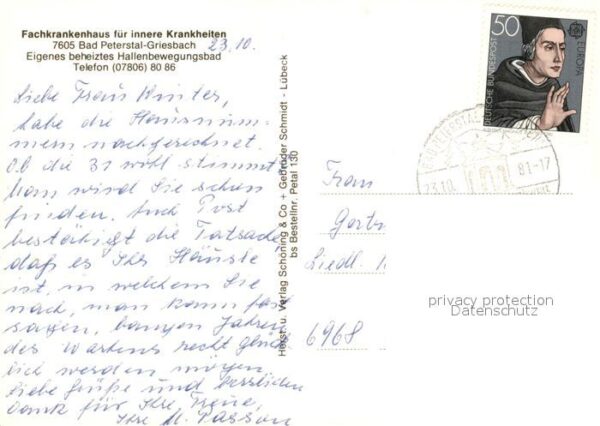 Fachkrankenhaus für innere Krankheiten
7605 Bad Peterstal-Griesbach
Eigenes beheiztes Hallenbewegungsbad
Telefon (07806) 80 86
23.10.
Liebe Frau Winter,
habe die Hausnum-
mern nachgerechnet.
Ob die 31 wohl stimmt?
Man wird Sie schon
finden. Auch Post
bestätigt die Tatsache
daß es Ihr Häusle
ist, in welchem Sie
nach, man kann fast
sagen, bangen Jahren
des Wartens recht glück-
lich werden mögen.
Liebe Grüße und herzlichen
Dank für Ihre Treue,
Ihre M. Passon
Horst u. Verlag Schöning & Co + Gebrüder Schmidt - Lübeck
bs Bestellnr. Petal 130
50
DEUTSCHE BUNDESPOST
EUROPA
23.10. 81-17
Frau
Gertr
Siedl.
6968
privacy protection
Datenschutz